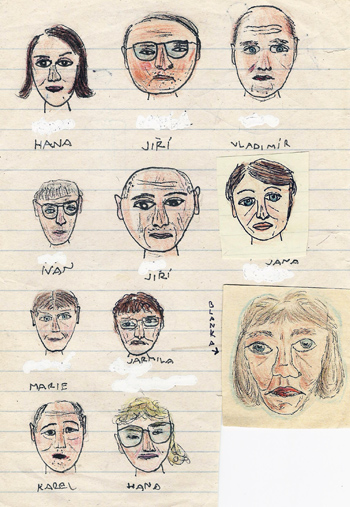 HANA
JIŘÍ
VLADIMÍR
IVAN
JIŘÍ
JANA
BLANKA
MARIE
JARMILA
KAREL
HANA